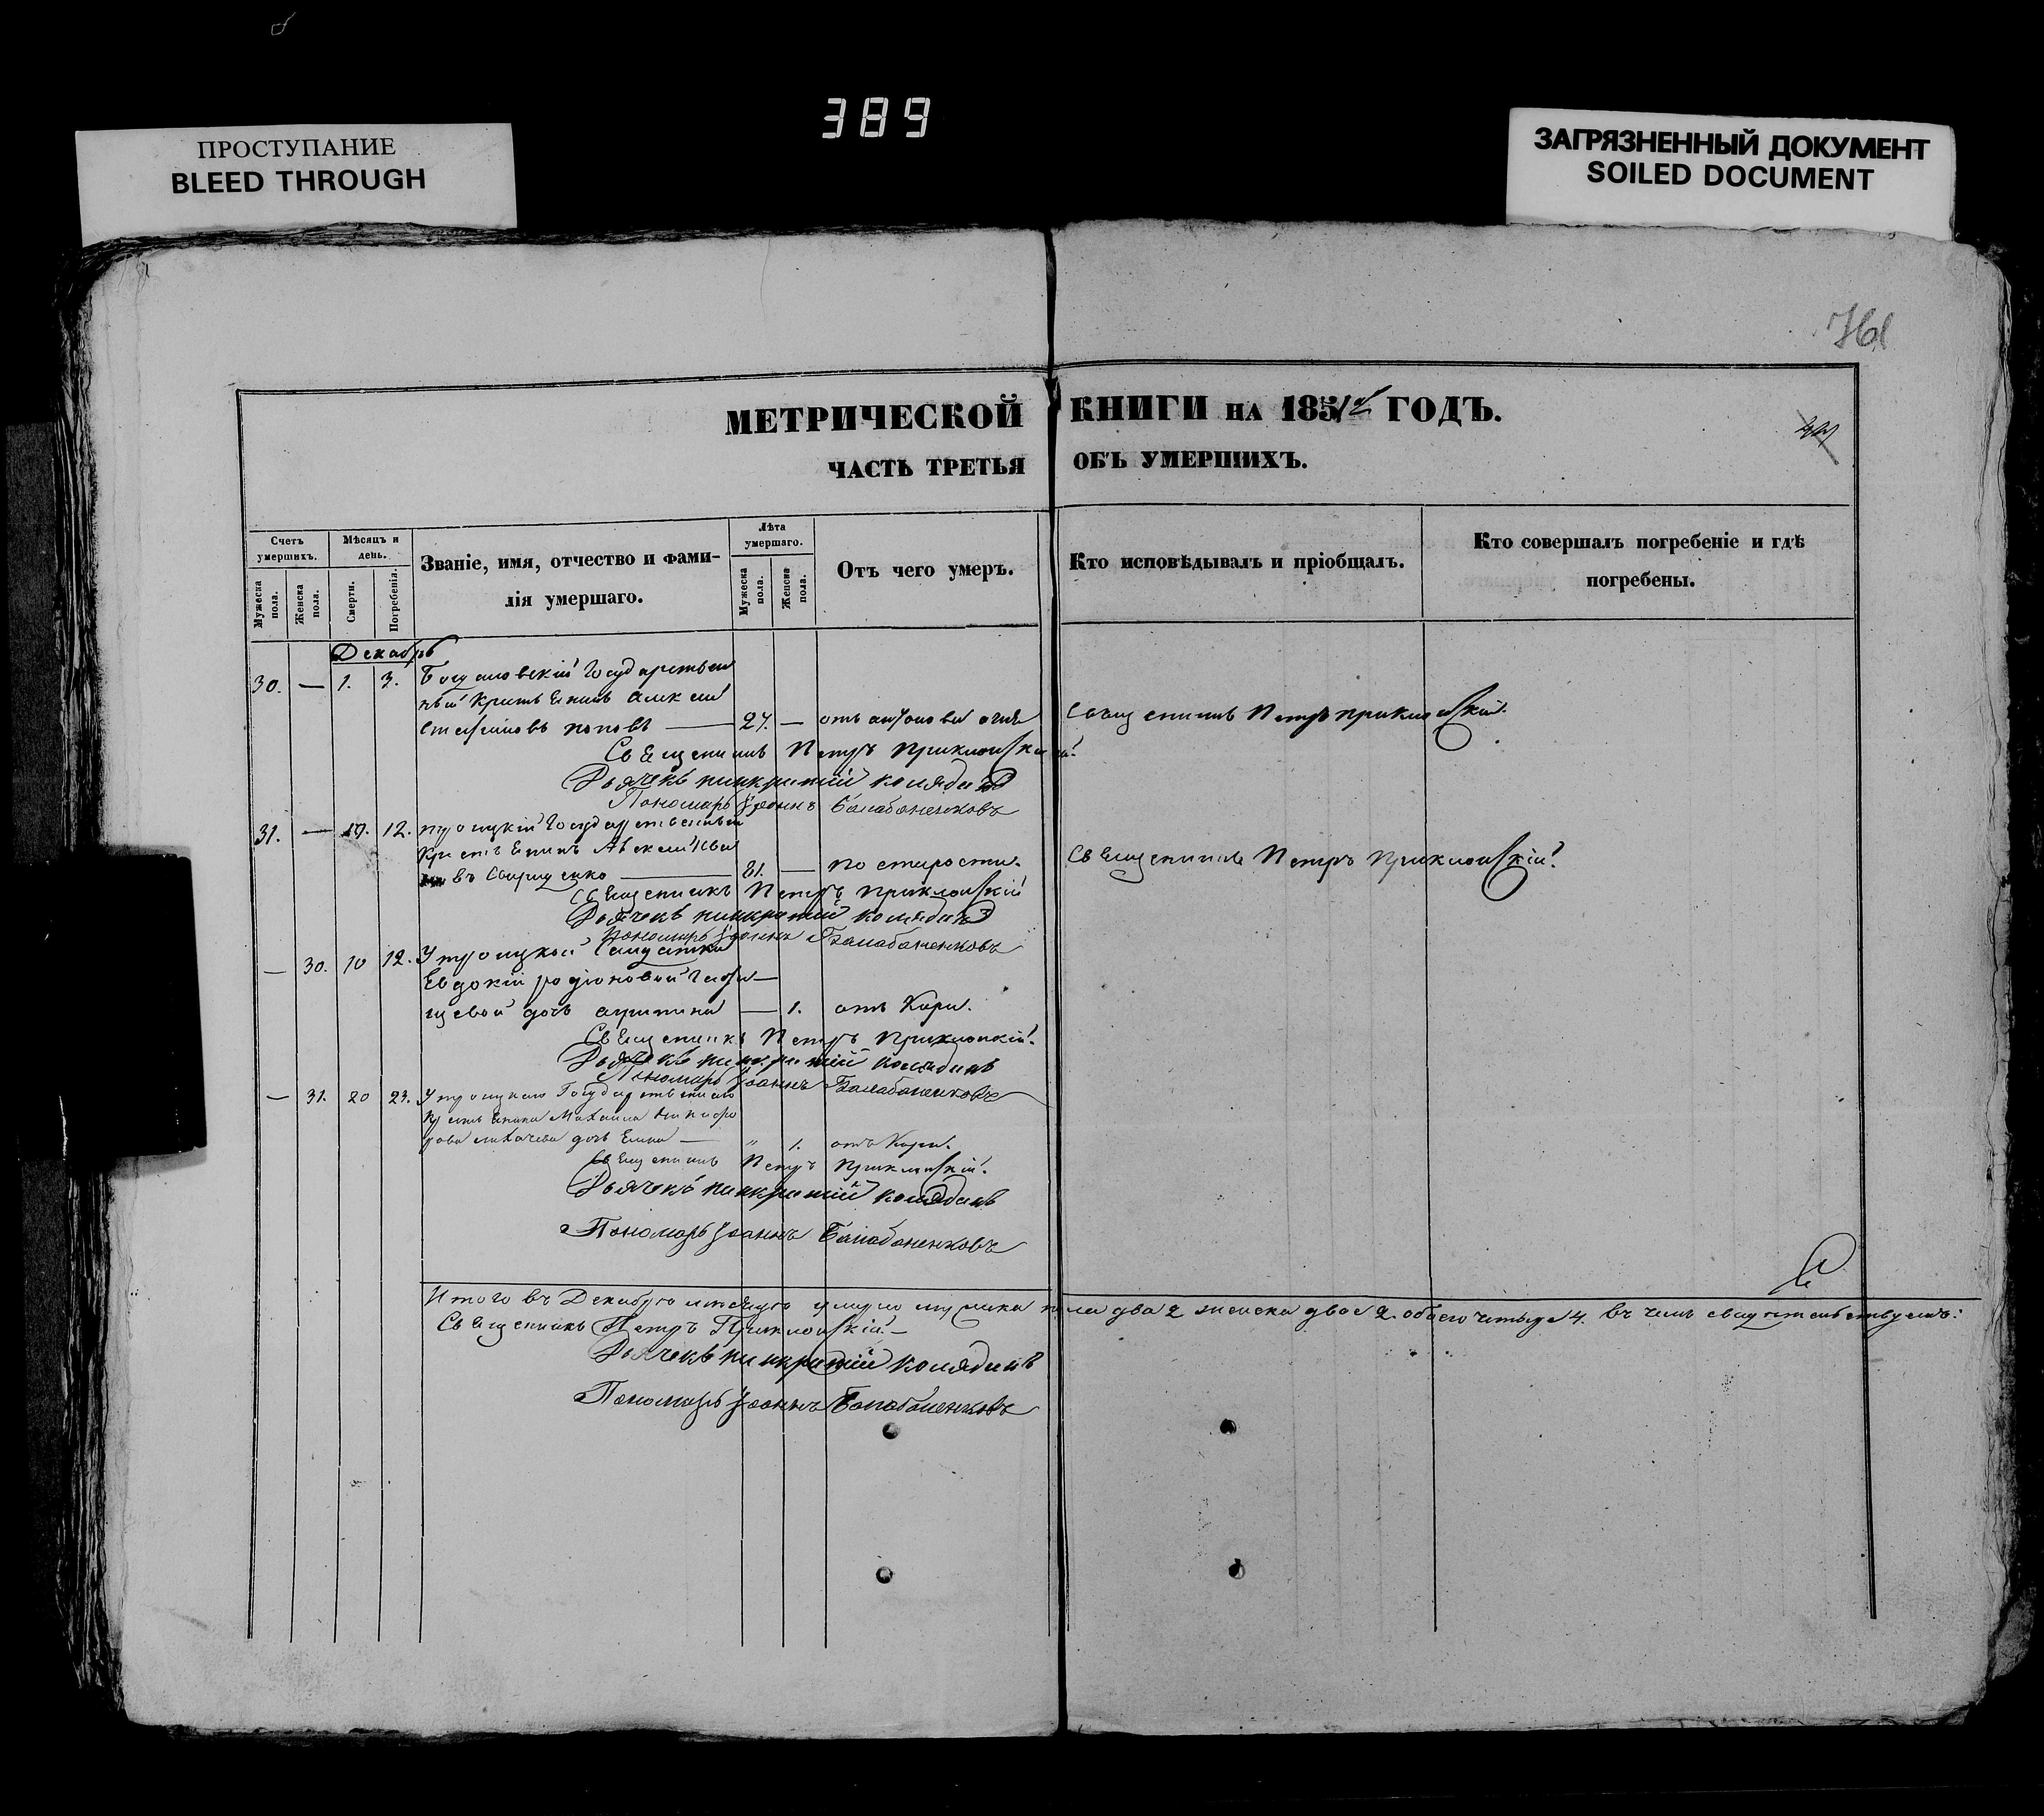 389
ПРОСТУПАНИЕ
BLEED THROUGH
ЗАГРЯЗНЕННЫЙ ДОКУМЕНТ
SOILED DOCUMENT
МЕТРИЧЕСКОЙ КНИГИ НА 1851й ГОДЪ.
ЧАСТЬ ТРЕТЬЯ ОБЪ УМЕРШИХЪ.
Счетъ умершихъ.
Мужеска пола.
Женска пола.
Мѣсяцъ и день.
Смерти.
Погребенія.
Званіе, имя, отчество и фами-
лія умершаго.
Лѣта умершаго.
Мужеска пола.
Женска пола.
Отъ чего умеръ.
Кто исповѣдывалъ и пріобщалъ.
Кто совершалъ погребеніе и гдѣ
погребены.
Декабрь
30. — 1. 3. Государствен
ный Крестьенинъ Алексей
поповъ — 27. — отъ антонова огня Священникъ Петръ Приклонскій.
Священникъ Петръ Приклонскій.
Дьячекъ панкратій колядинъ
Пономарь Іоаннъ Балабаненковъ
31. — 12. троицкій Государственный
Крестьенинъ
въ — 81. — по старости. Священникъ Петръ Приклонскій.
Священникъ Петръ Приклонскій
Дьячекъ панкратій колядинъ
Пономарь Іоаннъ Балабаненковъ
— 30. 10 12. У троицкой Салдатки
Евдокіи родіоновой
щевой дочь — 1. отъ Кори.
Священникъ Петръ Приклонскій.
Дьячекъ панкратій колядинъ
Пономарь Іоаннъ Балабаненковъ
— 31. 20 23. У троицкаго Государственнаго
Крестьенина Михаила Никифо
рова лихачева дочь Елена — " 1. отъ Кори.
Священникъ Петръ Приклонскій.
Дьячекъ панкратій колядинъ
Пономарь Іоаннъ Балабаненковъ
Итого въ Декабрѣ месяце умерло мужска пола два 2 женска двое 2. обоего четыре 4. въ чемъ свидетельствуемъ:
Священникъ Петръ Приклонскій. —
Дьячекъ панкратій колядинъ
Пономарь Іоаннъ Балабаненковъ